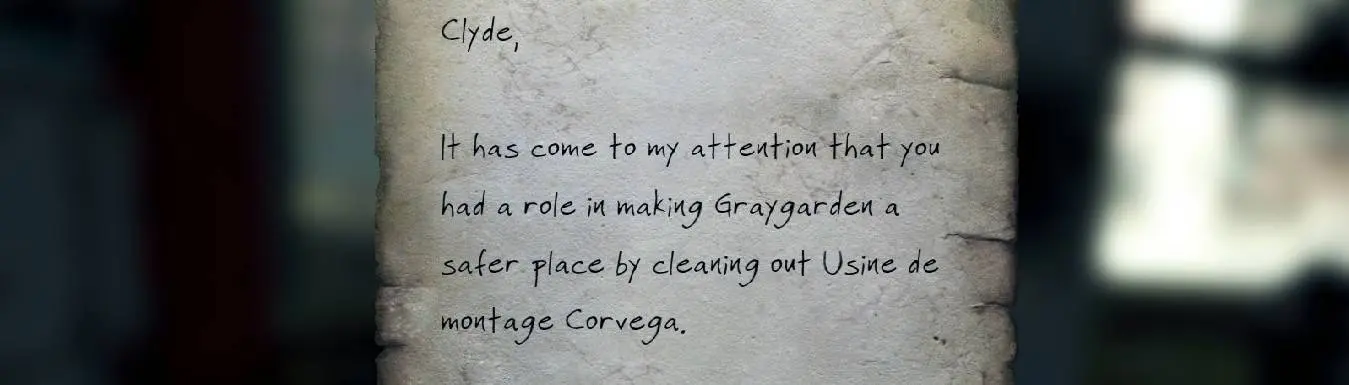 Clyde,
It has come to my attention that you
had a role in making Graygarden a
safer place by cleaning out Usine de
montage Corvega.